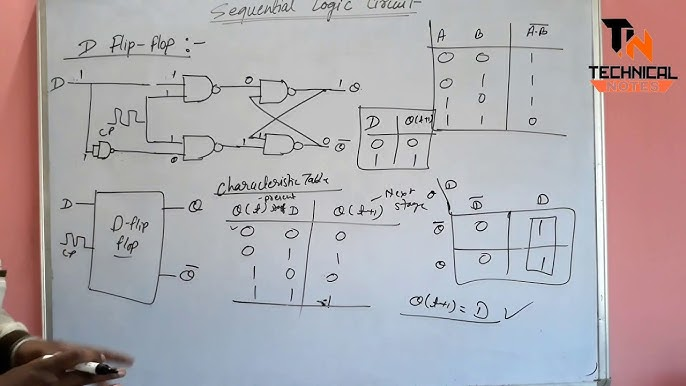 Sequential Logic Circuit
D Flip-flop :-
D 1 1 0 1 Q
CP
1 1
0 1 0 Q̅
A B A·B̅
0 0 1
0 1 1
1 0 1
1 1 0
TN
TECHNICAL
NOTES
D Q(t+1)
0 0
1 1
Characteristic Table
present Next
Q(t) D Q(t+1) stage
0 0 0
0 1 1
1 0 0
1 1 1
D Q
D-flip
flop
CP
Q̅
Q D
D̅ D
Q̅ 0 1
Q 0 1
Q(t+1) = D ✓